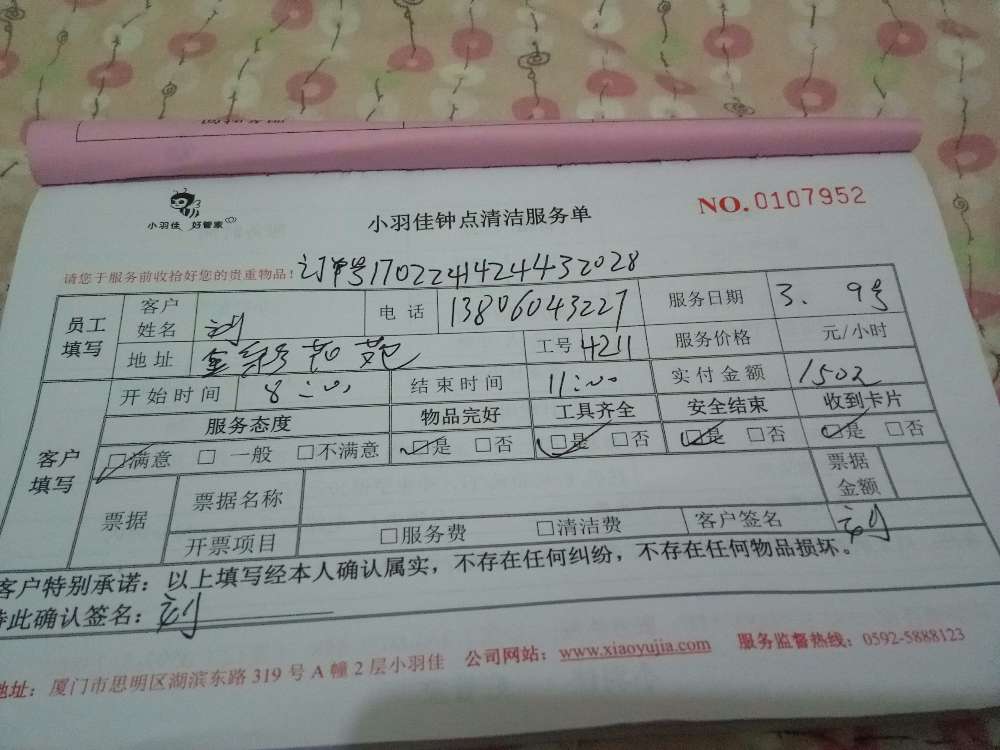 小羽佳 好管家
小羽佳钟点清洁服务单
NO.0107952
请您于服务前收拾好您的贵重物品!
订单号170224142443 2028
员工填写
客户姓名 刘
电话 13806043227
服务日期 3. 9号
地址
工号 4211
服务价格 元/小时
客户填写
开始时间 8:00
结束时间 11:00
实付金额 150元
服务态度 物品完好 工具齐全 安全结束 收到卡片
□满意 □一般 □不满意 □是 □否 □是 □否 □是 □否 □是 □否
票据
票据名称
票据金额
开票项目 □服务费 □清洁费 客户签名 刘
客户特别承诺:以上填写经本人确认属实,不存在任何纠纷,不存在任何物品损坏。
特此确认签名:刘
地址:厦门市思明区湖滨东路319号A幢2层小羽佳 公司网站:www.xiaoyujia.com 服务监督热线:0592-5888123